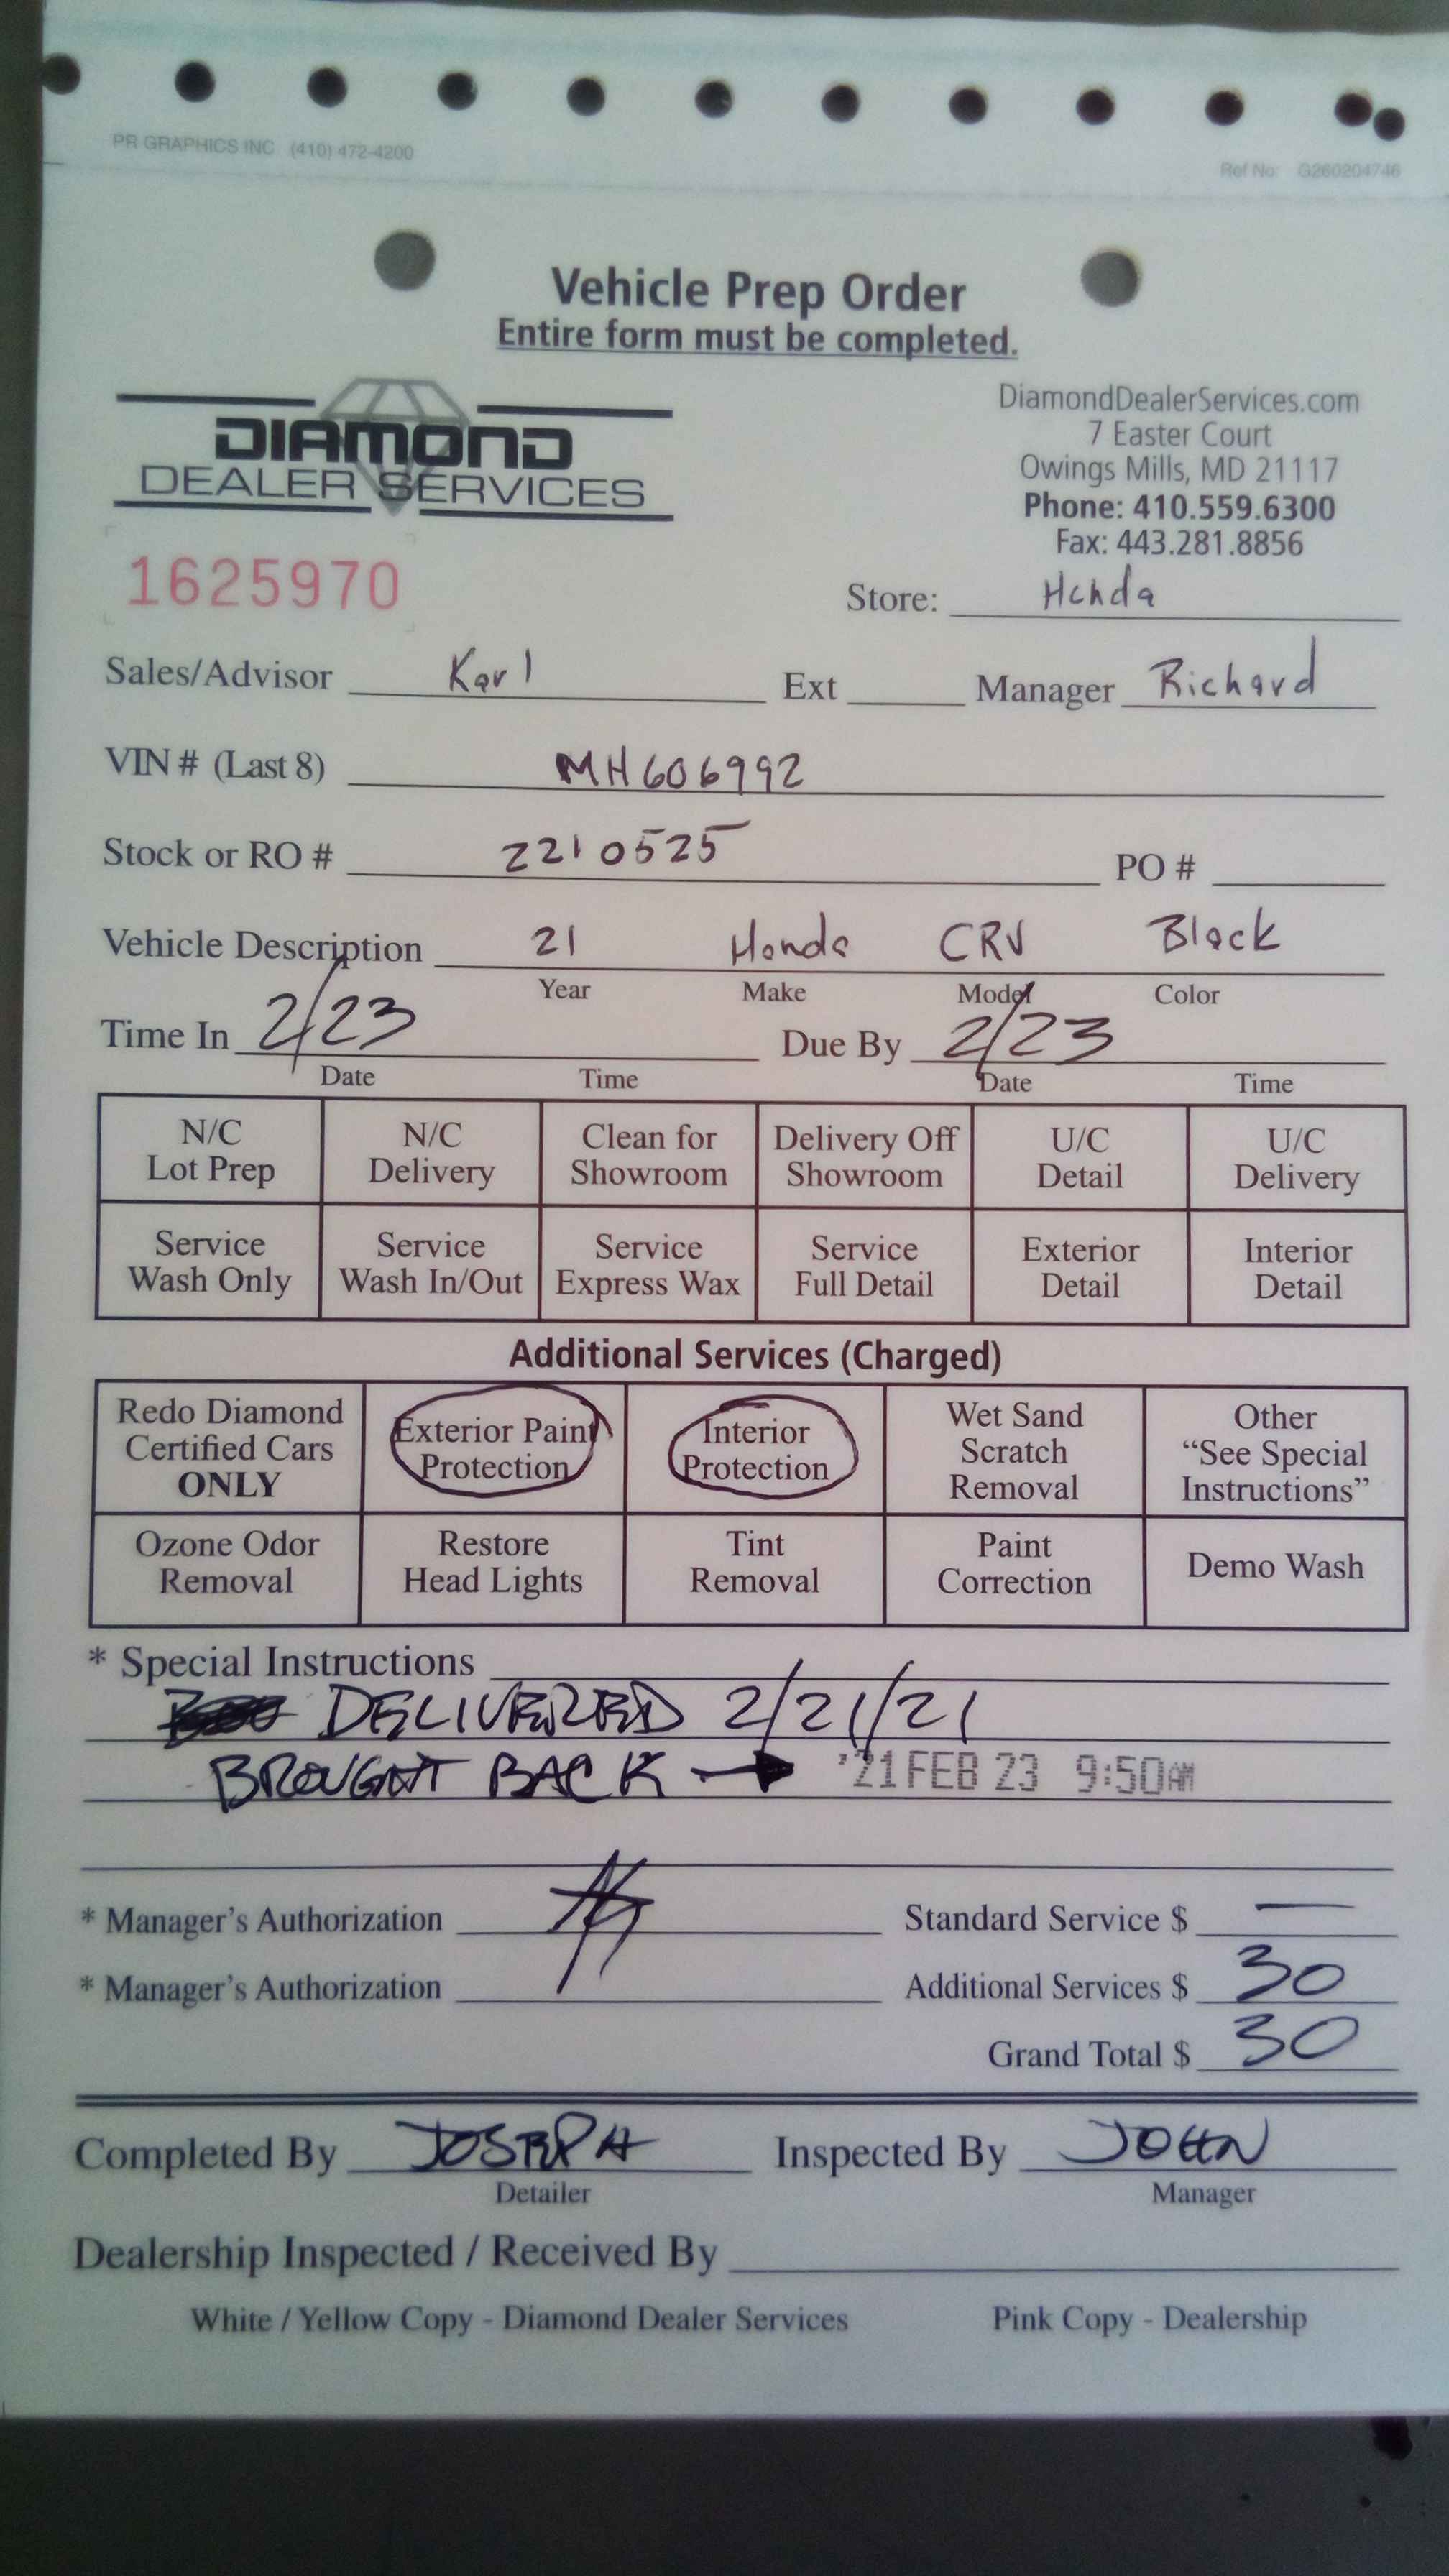 PR GRAPHICS INC (410) 472-4200
Ref No: G260204746
Vehicle Prep Order
Entire form must be completed.
DIAMOND
DEALER SERVICES
DiamondDealerServices.com
7 Easter Court
Owings Mills, MD 21117
Phone: 410.559.6300
Fax: 443.281.8856
1625970
Store: Honda
Sales/Advisor Karl Ext Manager Richard
VIN # (Last 8) MH606992
Stock or RO # 2210525 PO #
Vehicle Description 21 Honda CRV Black
Year Make Model Color
Time In 2/23 Due By 2/23
Date Time Date Time
N/C Lot Prep
N/C Delivery
Clean for Showroom
Delivery Off Showroom
U/C Detail
U/C Delivery
Service Wash Only
Service Wash In/Out
Service Express Wax
Service Full Detail
Exterior Detail
Interior Detail
Additional Services (Charged)
Redo Diamond Certified Cars ONLY
Exterior Paint Protection
Interior Protection
Wet Sand Scratch Removal
Other "See Special Instructions"
Ozone Odor Removal
Restore Head Lights
Tint Removal
Paint Correction
Demo Wash
* Special Instructions
DELIVERED 2/21/21
BROUGHT BACK → '21 FEB 23 9:50AM
* Manager's Authorization Standard Service $ —
* Manager's Authorization Additional Services $ 30
Grand Total $ 30
Completed By JOSEPH Inspected By JOHN
Detailer Manager
Dealership Inspected / Received By
White / Yellow Copy - Diamond Dealer Services Pink Copy - Dealership